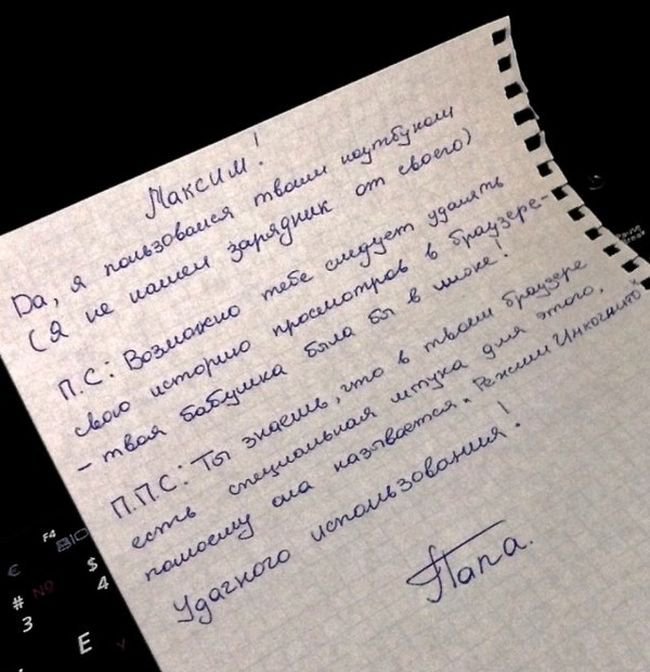 Максим!
Да, я пользовался твоим ноутбуком
(Я не нашел зарядник от своего)
П.С: Возможно тебе следует удалять
свою историю просмотров в браузере-
- твоя бабушка была бы в шоке!
П.П.С: Ты знаешь, что в твоем браузере
есть специальная штука для этого,
помоему она называется "Режим Инкогнито"
Удачного использования!
Папа.
F4
€
$
4
#
3
E